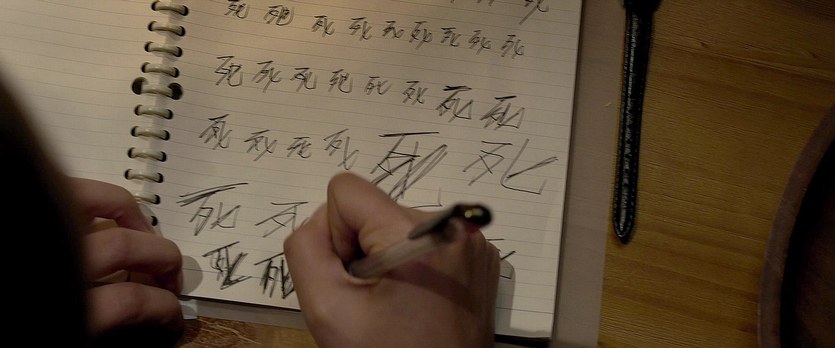 死死死死死死死死死
死死死死死死死死
死死死死死死
死死
死死